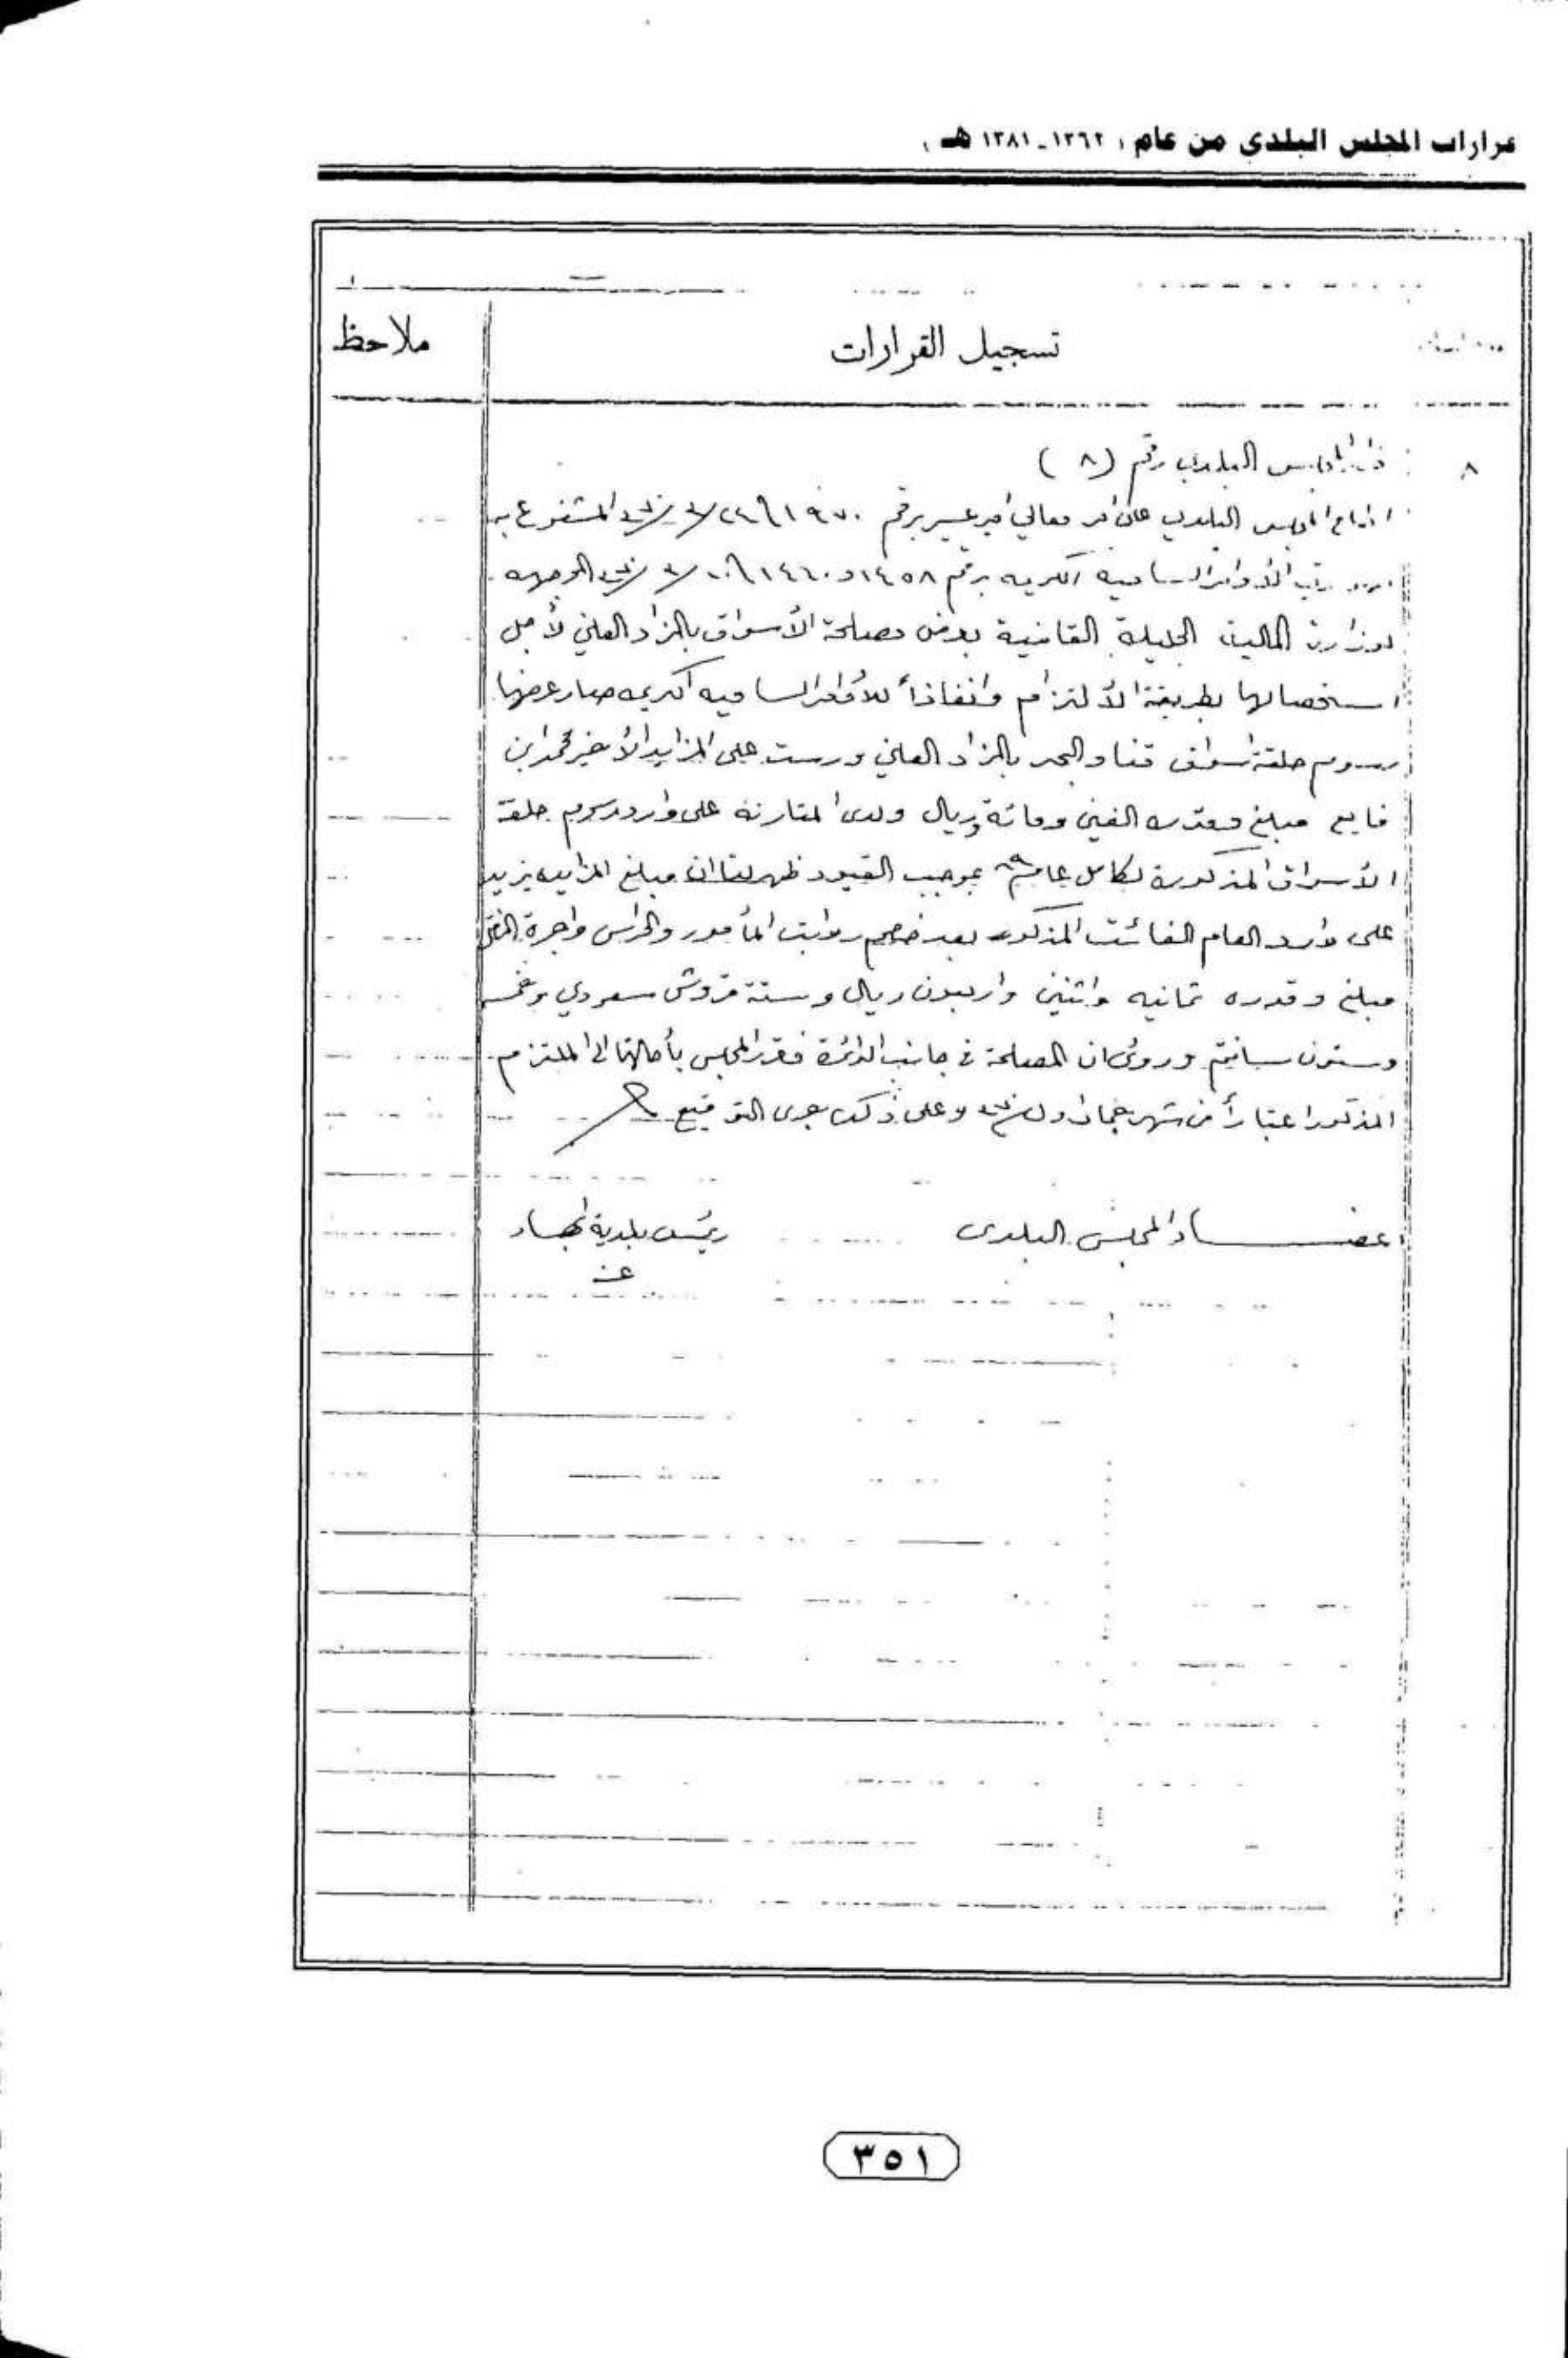 قرارات المجلس البلدي من عام ( ١٣٦٢ - ١٣٨١ هـ )
تسجيل القرارات
ملاحظ
٨
المجلس البلدي رقم ( ٨ )
المجلس البلدي على امر معالي امير عسير برقم ١٩٧٠ المشفوع به
الأوامر السامية الكريمه برقم ١٤٥٨ و ١٤٦٠ الموجهه
لوزارة المالية الجليلة القاضية بعرض مصلحة الأسواق بالمزاد العلني لأجل
استحصالها بطريقة الألتزام وانفاذاً للأوامر الساميه الكريمه صار عرضها
رسوم حلقة اسواق قنا والبحر بالمزاد العلني ورست على المزايد الأخير محمد ابن
فايع مبلغ وقدره الفين ومائة ريال ولدى المقارنه على وارد رسوم حلقة
الأسواق المذكورة لكامل عام بموجب القيود ظهر لنا ان مبلغ المزايده يزيد
على وارد العام الفائت المذكور بعد خصم رواتب المأمور والحراس واجرة
مبلغ وقدره ثمانيه واثنين واربعون ريال وستة قروش سعودي وخمسه
وستون سانتم ورؤي ان المصلحة في جانب الدائرة فقرر المجلس بأحالتها الى الملتزم
المذكور اعتباراً من شهر جماد اول وعلى ذلك جرى التوقيع
اعضاء المجلس البلدي
رئيس بلدية ابها
عنه
٣٥١